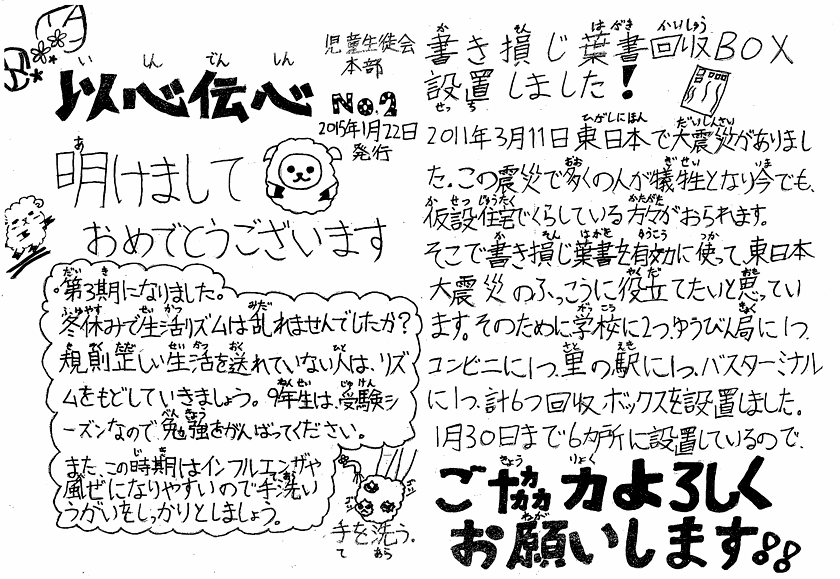 以心伝心
いしんでんしん
児童生徒会
本部
No.2
2015年1月22日
発行
明けまして
おめでとうございます
第3期になりました。
冬休みで生活リズムは乱れませんでしたか?
規則正しい生活を送れていない人は、リズ
ムをもどしていきましょう。9年生は、受験シ
ーズンなので、勉強をがんばってください。
また、この時期はインフルエンザや
風ぜになりやすいので手洗い
うがいをしっかりとしましょう。
手を洗う。
て あら
書き損じ葉書回収BOX
設置しました!
2011年3月11日東日本で大震災がありまし
た。この震災で多くの人が犠牲となり今でも、
仮設住宅でくらしている方々がおられます。
そこで書き損じ葉書を有効に使って、東日本
大震災のふっこうに役立てたいと思ってい
ます。そのために学校に2つ、ゆうびん局に1つ、
コンビニに1つ、里の駅に1つ、バスターミナル
に1つ、計6つ回収ボックスを設置しました。
1月30日まで6カ所に設置しているので、
ご協力よろしく
お願いします!!